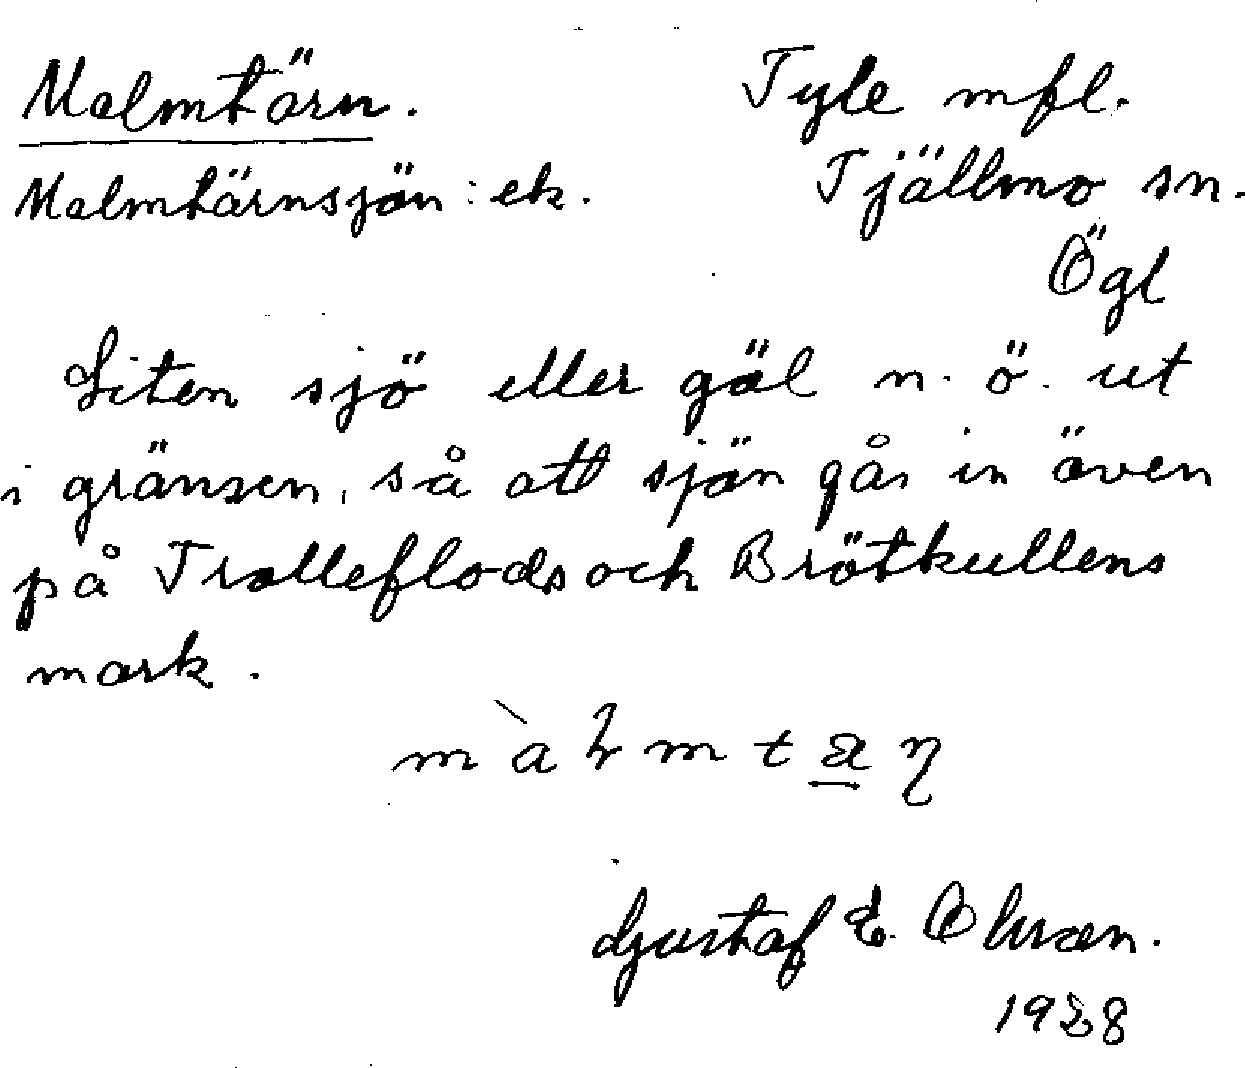 Malmtärn. Tyle mfl.
Malmtärnsjön: ek. Tjällmo sn.
Ögl
Liten sjö eller gäl n. ö. ut
i gränsen, så att sjön går in även
på Trolleflods och Brötkullens
mark.
Gustaf E. Olsson.
1928